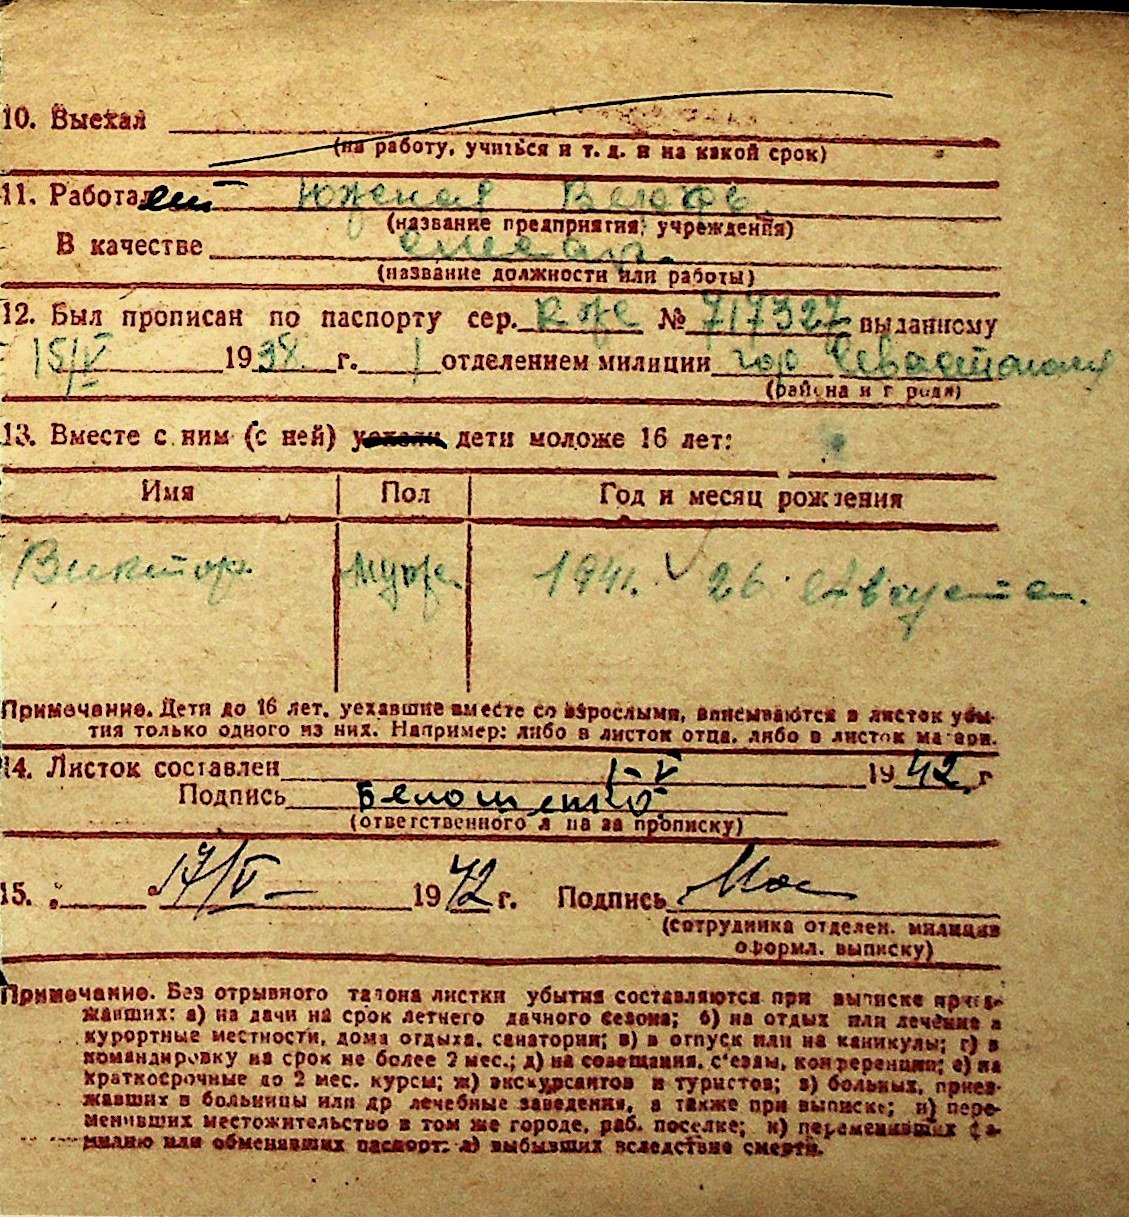 10. Выехал
(на работу, учиться и т. д. и на какой срок)
11. Работает Южная Верфь
(название предприятия, учреждения)
В качестве слесар.
(название должности или работы)
12. Был прописан по паспорту сер. № 717327 выданному
15/V 1938 г. 1 отделением милиции гор Севастополя
(района и г рода)
13. Вместе с ним (с ней) дети моложе 16 лет:
Имя Пол Год и месяц рождения
Виктор муж. 1941. 26 Августа.
Примечание. Дети до 16 лет, уехавшие вместе со взрослыми, вписываются в листок убы-
тия только одного из них. Например: либо в листок отца, либо в листок матери.
14. Листок составлен 1-V 1942 г
Подпись
(ответственного л ца за прописку)
15. 17/V 1942 г. Подпись
(сотрудника отделен. милиции
оформл. выписку)
Примечание. Без отрывного талона листки убытия составляются при выписке приез-
жавших: а) на дачи на срок летнего дачного сезона; б) на отдых или лечение в
курортные местности, дома отдыха, санатории; в) в отпуск или на каникулы; г) в
командировку на срок не более 2 мес.; д) на совещания, с'езды, конференции; е) на
краткосрочные до 2 мес. курсы; ж) экскурсантов и туристов; з) больных, приез-
жавших в больницы или др лечебные заведения, а также при выписке; и) пере-
менивших местожительство в том же городе, раб. поселке; к) переменивших фа-
милию или обменявших паспорт; л) выбывших вследствие смерти.